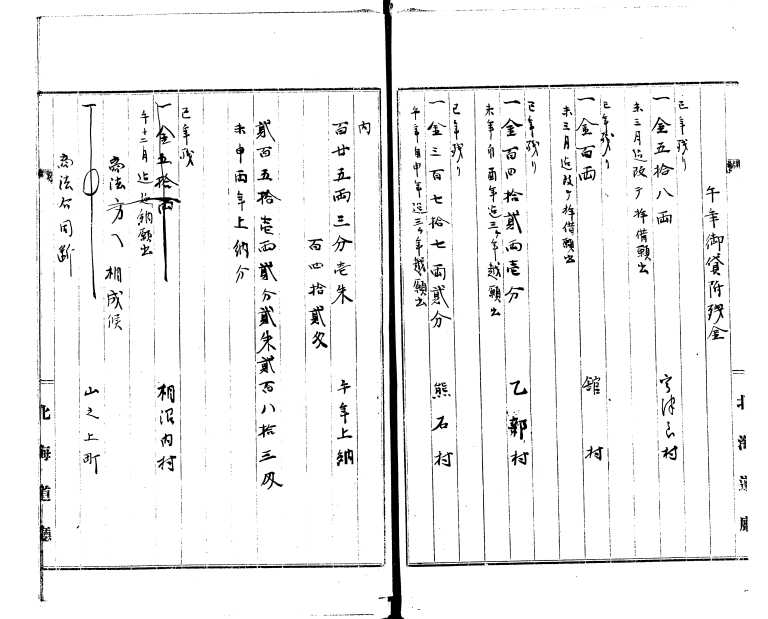 午年御貸附残金
巳年残り
一金五拾八両
宇津良村
未三月迄改テ拝借願出
巳年残り
一金百両
舘村
未三月迄改テ拝借願出
巳年残り
一金百四拾貳両壱分
乙部村
未年ゟ酉年迄三ヶ年越願出
巳年残り
一金三百七拾七両貳分
熊石村
午年ゟ申年迄三ヶ年越願出
北海道廳
内
百廿五両三分壱朱
午年上納
百四拾貳文
貳百五拾壱両貳分貳朱貳百八拾三文
未申両年上納分
巳年残
一金五拾両
相沼内村
午十二月迄延納願出
商法方へ相成候
一
山之上町
商法合同断
北海道廳